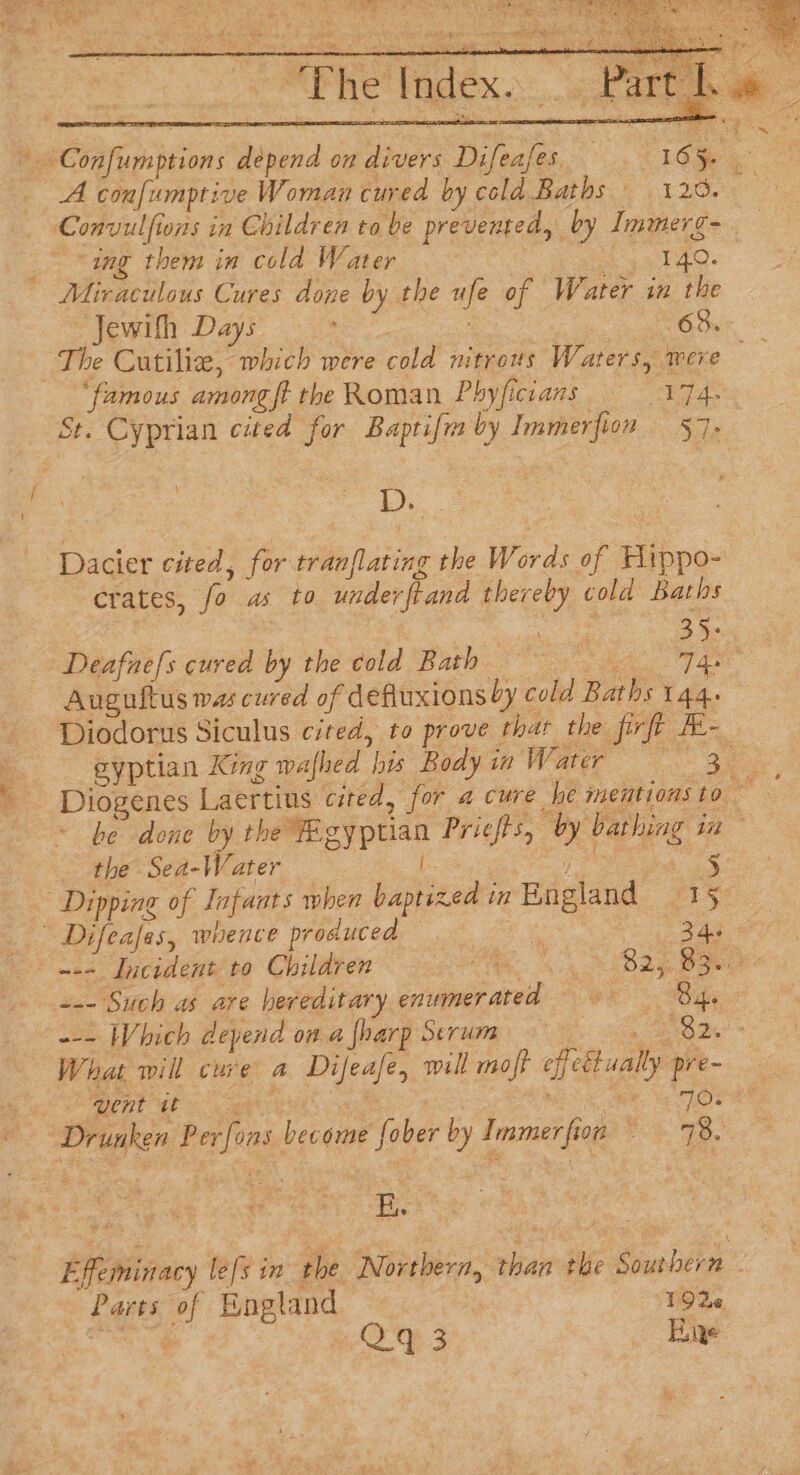 The Index. Part I.
Conſumptions depend on divers Diſeaſes 165.
A conſumptive Woman cured by cold Baths 120.
Convulſions in Children to be prevented, by Immerg-
ing them in cold Water 140.
Miraculous Cures done by the uſe of Water in the
Jewiſh Days 68.
The Cutiliæ, which were cold nitrous Waters, were
famous amongſt the Roman Phyſicians 174.
St. Cyprian cited for Baptiſm by Immerſion 57.
D.
Dacier cited, for tranſlating the Words of Hippo-
crates, ſo as to underſtand thereby cold Baths
35.
Deafneſs cured by the cold Bath 74.
Auguſtus was cured of defluxions by cold Baths 144.
Diodorus Siculus cited, to prove that the firſt Æ-
gyptian King waſhed his Body in Water 3.
Diogenes Laertius cited, for a cure he mentions to
be done by the Ægyptian Prieſts, by bathing in
the Sea-Water 5
Dipping of Infants when baptized in England 15
Diſeaſes, whence produced 34.
--- Incident to Children 82, 83.
--- Such as are hereditary enumerated 84.
--- Which depend on a ſharp Serum 82.
What will cure a Diſeaſe, will moſt effectually pre-
vent it 70.
Drunken Perſons become ſober by Immerſion 78.
E.
Effeminacy leſs in the Northern, than the Southern
Parts of England 192.
Qq 3 Ene